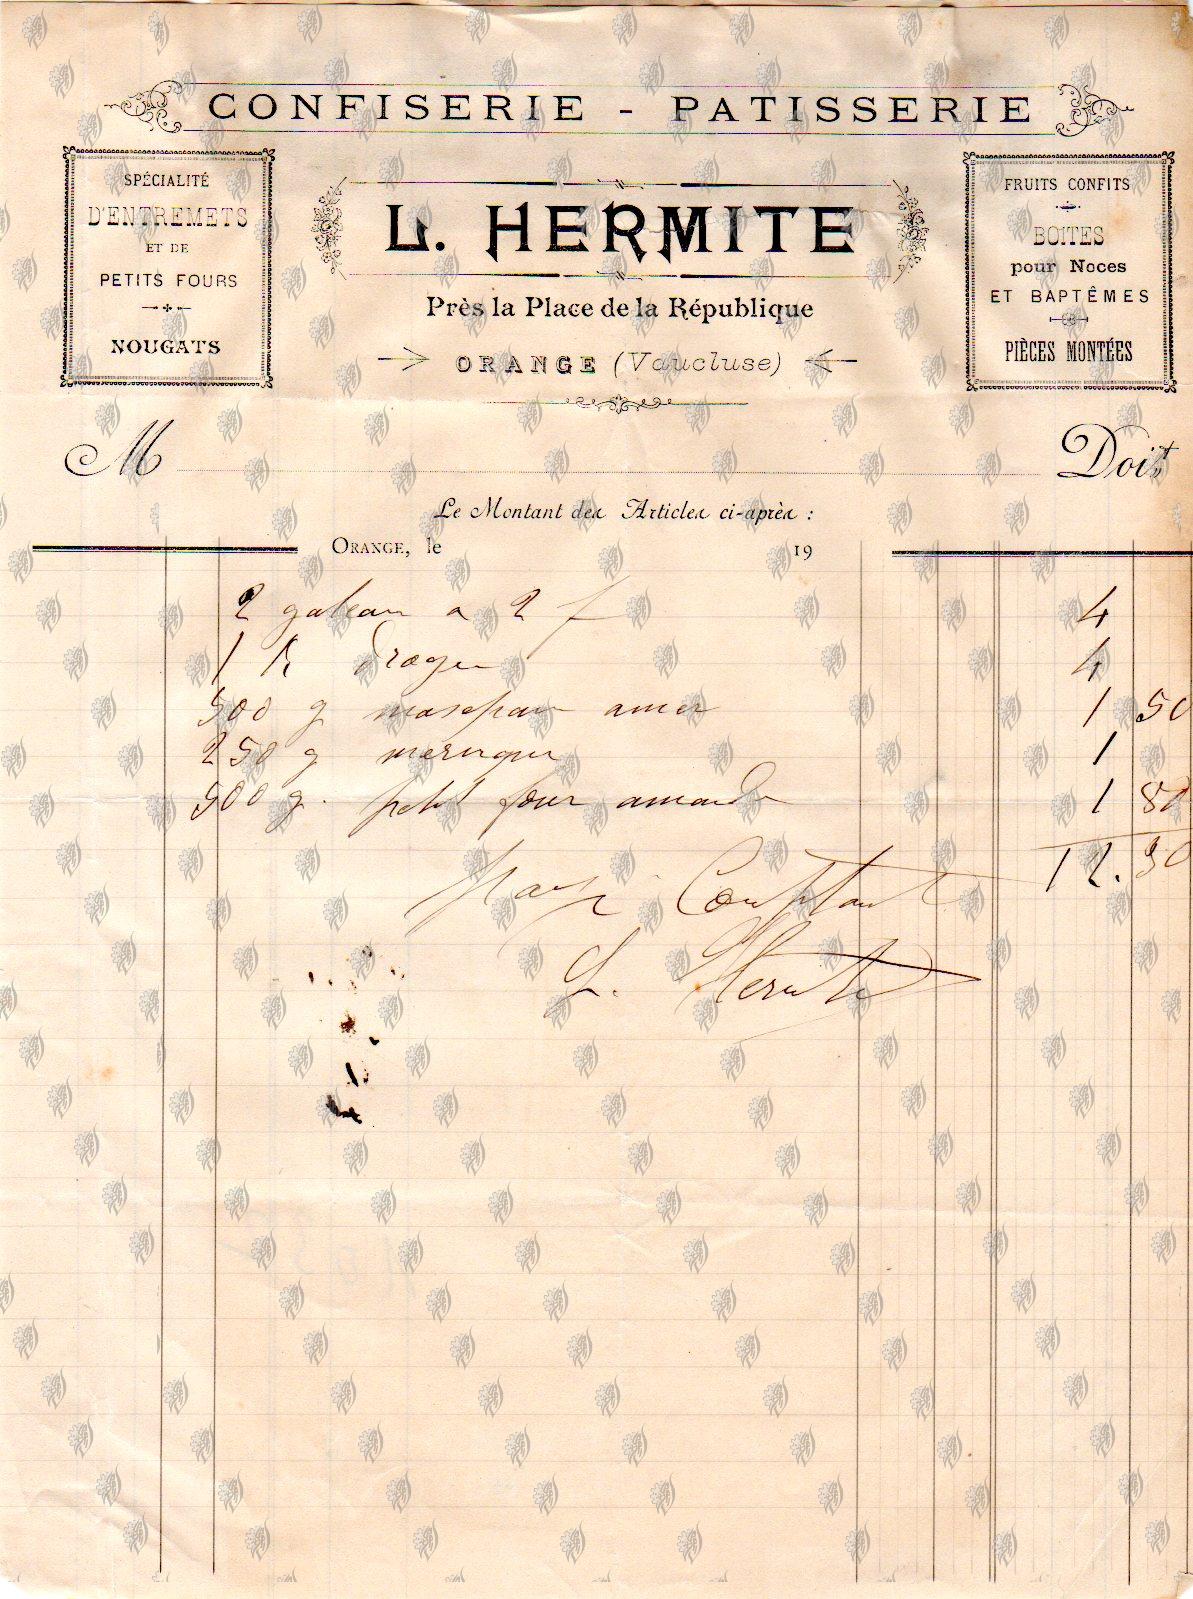 CONFISERIE - PATISSERIE
SPÉCIALITÉ
D'ENTREMETS
ET DE
PETITS FOURS
NOUGATS
L. HERMITE
Près la Place de la République
ORANGE (Vaucluse)
FRUITS CONFITS
BOITES
pour Noces
ET BAPTÊMES
PIÈCES MONTÉES
M Doit
Le Montant des Articles ci-après :
ORANGE, le 19
2 gateau a 2 f 4
1 K dragee 4
500 g massepain amer 1 50
250 g meringue 1
500 g. petit four amande 1 80
12. 30
payé Comptant
L. Hermite